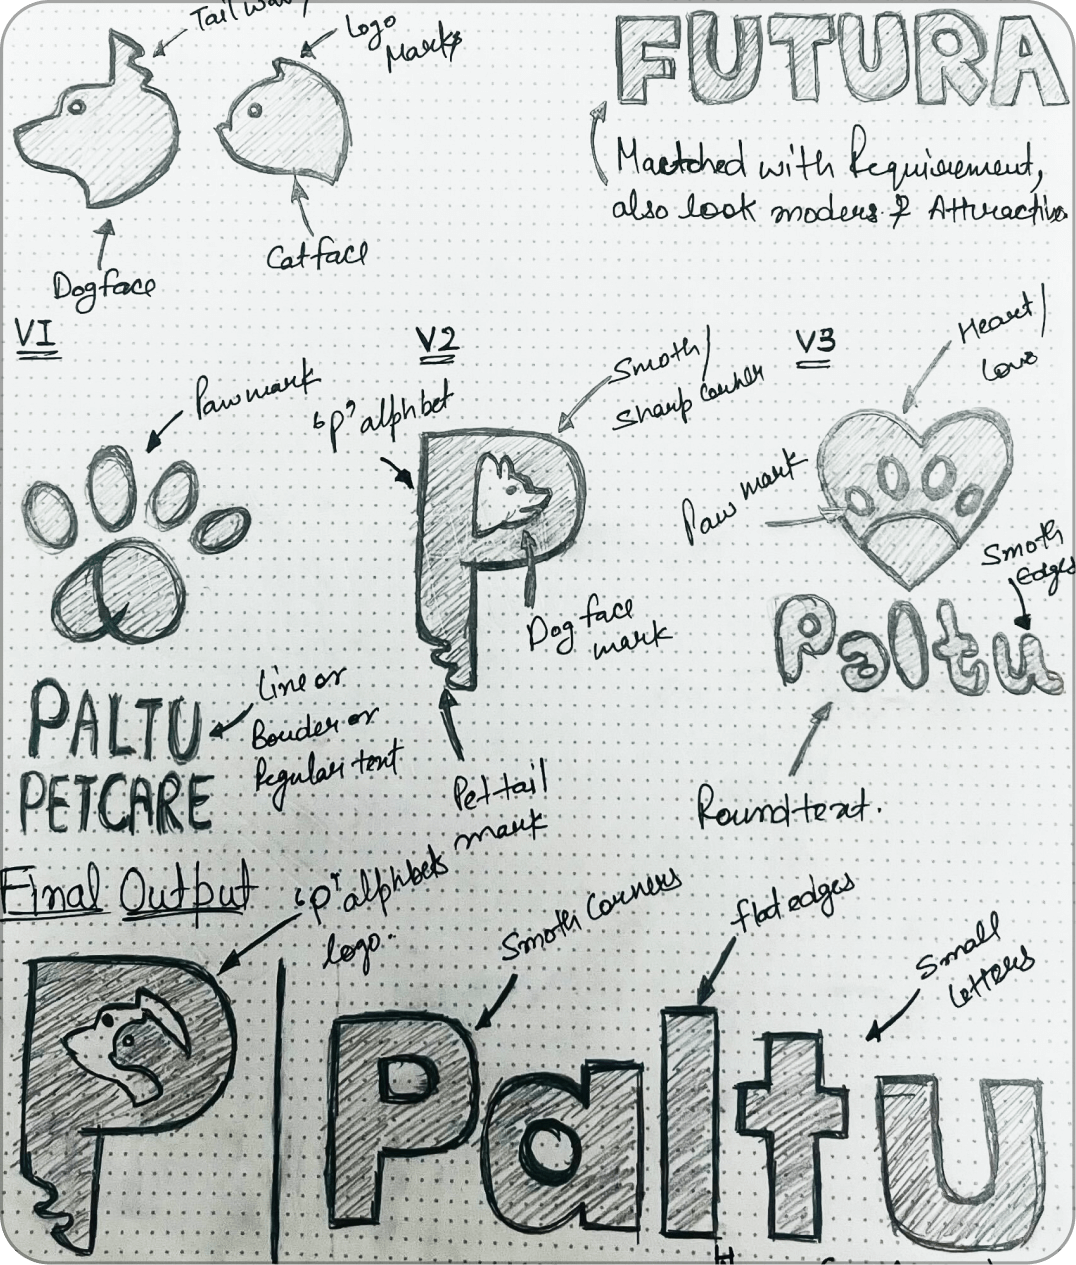 Tail
Logo
Marks
FUTURA
Mactched with Requirement,
also look moders & Attractive
Dogface
Catface
V1
V2
V3
Pawmark
'P' alphbet
Smoth/
Sharp Corner
Heart/
Love
Paw mark
Smoth
edges
Dog face
mark
Paltu
PALTU
PETCARE
Line or
Border or
Regular text
Pet tail
mark
Round text.
Final Output
'P' alphbets
logo.
Smoth Corners
flat edges
Small
letters
P
Paltu